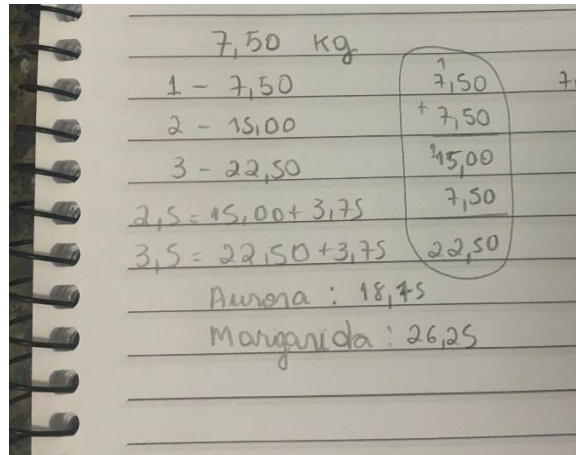 7,50 kg
1 - 7,50
2 - 15,00
3 - 22,50
2,5 = 15,00 + 3,75
3,5 = 22,50 + 3,75
Aurora : 18,75
Margarida : 26,25
1
7,50
+ 7,50
15,00
7,50
22,50